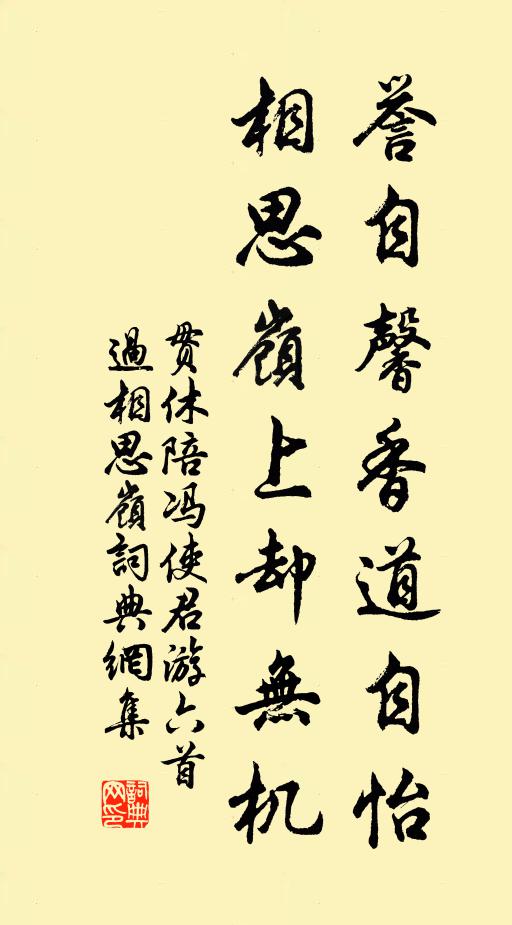 誉自馨香道自怡
相思嶺上却無机
贯休陪冯使君游六首
過相思嶺詞典網集
詞典
网印